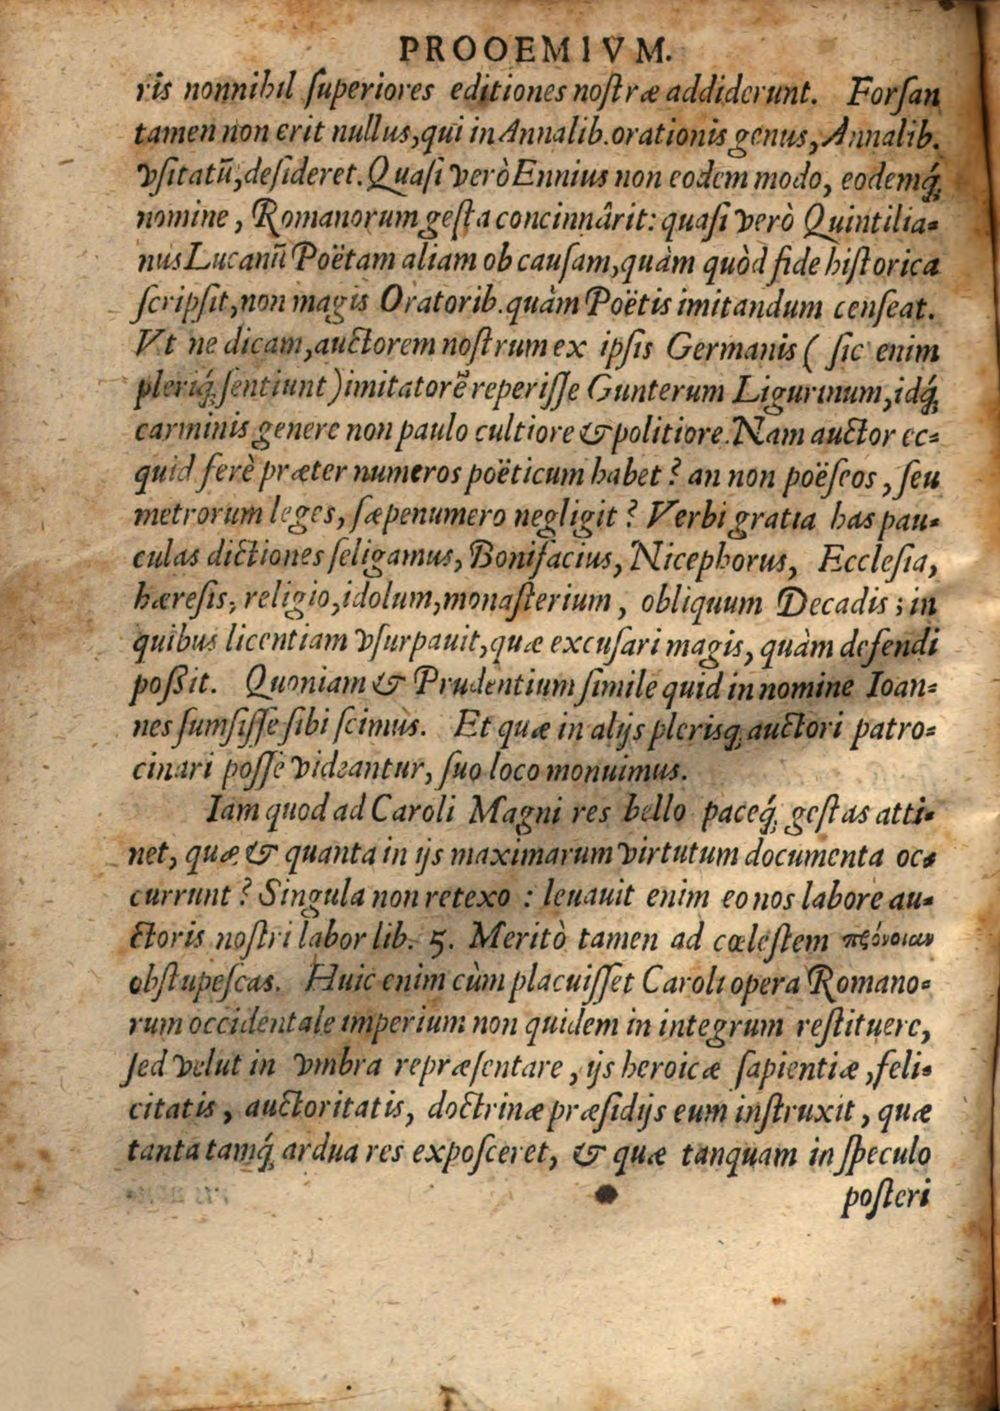 PROOEMIVM.
ris nonnihil ſuperiores editiones noſtræ addiderunt. Forſan
tamen non erit nullus, qui in Annalib. orationis genus, Annalib.
vſitatũ, deſideret. Quaſi verò Ennius non eodem modo, eodemq́;
nomine, Romanorum geſta concinnârit: quaſi verò Quintilia-
nus Lucanũ Poëtam aliam ob cauſam, quàm quòd fide hiſtorica
ſcripſit, non magis Oratorib. quàm Poëtis imitandum cenſeat.
Vt ne dicam, auctorem noſtrum ex ipſis Germanis (ſic enim
pleriq́; ſentiunt) imitatorẽ reperiſſe Gunterum Ligurinum, idq́;
carminis genere non paulo cultiore & politiore. Nam auctor ec-
quid ferè præter numeros poëticum habet? an non poëſeos, ſeu
metrorum leges, ſæpenumero negligit? Verbi gratia has pau-
culas dictiones ſeligamus, Bonifacius, Nicephorus, Eccleſia,
hæreſis, religio, idolum, monaſterium, obliquum Decadis; in
quibus licentiam vſurpauit, quæ excuſari magis, quàm defendi
poßit. Quoniam & Prudentium ſimile quid in nomine Ioan-
nes ſumſiſſe ſibi ſcimus. Et quæ in alijs plerisq; auctori patro-
cinari poſſe videantur, ſuo loco monuimus.
Iam quod ad Caroli Magni res bello paceq́; geſtas atti-
net, quæ & quanta in ijs maximarum virtutum documenta oc-
currunt? Singula non retexo: leuauit enim eo nos labore au-
ctoris noſtri labor lib. 5. Meritò tamen ad cœleſtem πρόνοιαν
obſtupeſcas. Huic enim cùm placuiſſet Caroli opera Romano-
rum occidentale imperium non quidem in integrum reſtituere,
ſed velut in vmbra repræſentare, ijs heroicæ ſapientiæ, feli-
citatis, auctoritatis, doctrinæ præſidijs eum inſtruxit, quæ
tanta tamq́; ardua res expoſceret, & quæ tanquam in ſpeculo
poſteri